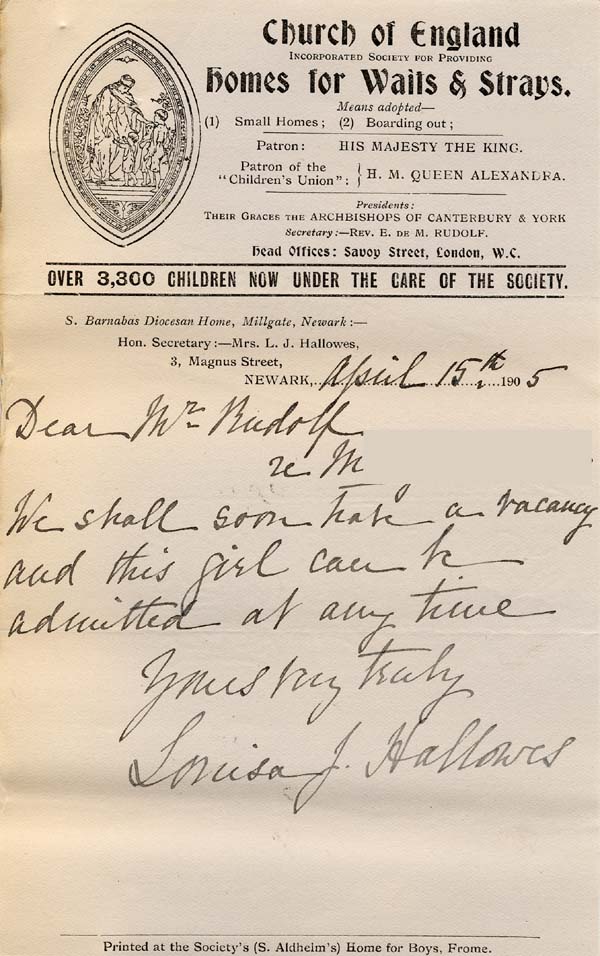 Church of England
Incorporated Society for Providing
Homes for Waifs & Strays.
Means adopted—
(1) Small Homes; (2) Boarding out;
Patron: HIS MAJESTY THE KING.
Patron of the "Children's Union": } H. M. QUEEN ALEXANDRA.
Presidents:
Their Graces the ARCHBISHOPS OF CANTERBURY & YORK
Secretary:—Rev. E. de M. RUDOLF.
Head Offices: Savoy Street, London, W.C.
OVER 3,300 CHILDREN NOW UNDER THE CARE OF THE SOCIETY.
S. Barnabas Diocesan Home, Millgate, Newark:—
Hon. Secretary:—Mrs. L. J. Hallowes,
3, Magnus Street,
NEWARK, April 15th 1905
Dear Mr Rudolf
re M
We shall soon have a vacancy
and this girl can be
admitted at any time
Yours very truly
Louisa J. Hallowes
Printed at the Society's (S. Aldhelm's) Home for Boys, Frome.